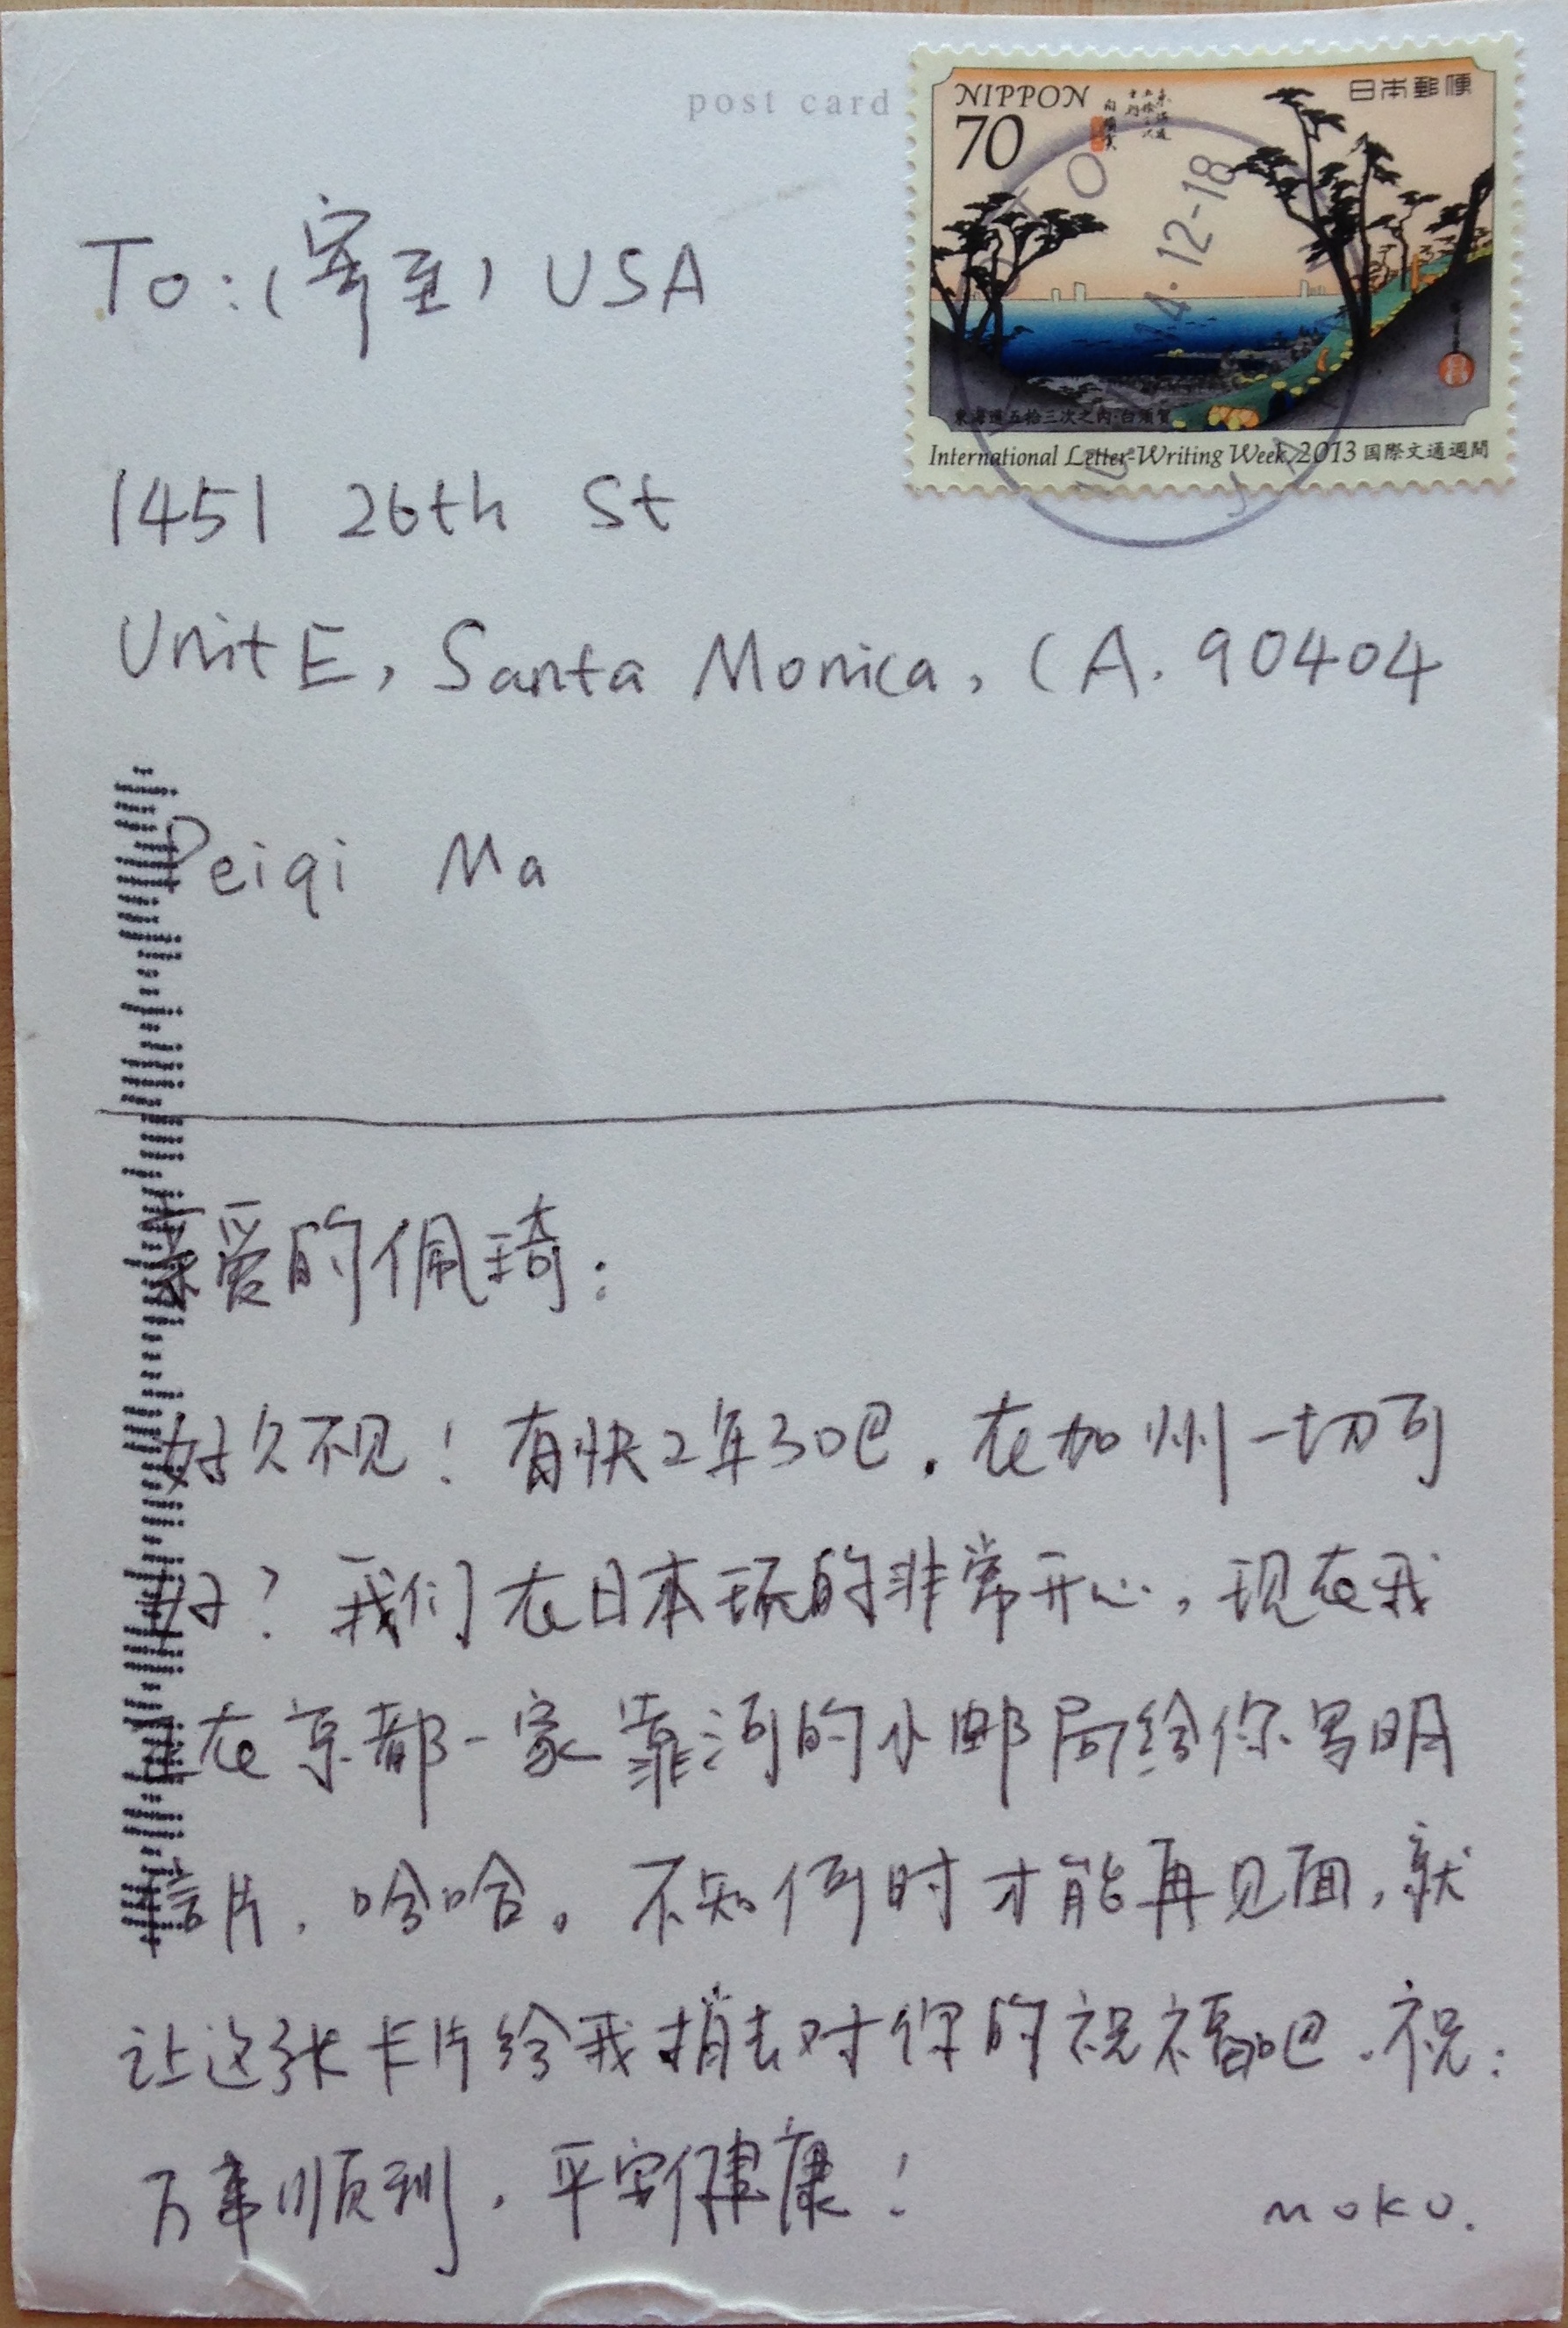 post card
NIPPON
70
日本郵便
14.12-18
東海道五拾三次之内・白須賀
International Letter-Writing Week, 2013 国際文通週間
To:(寄至) USA
1451 26th St
Unit E, Santa Monica, CA. 90404
Peiqi Ma
亲爱的佩琦:
好久不见!有快2年了吧.在加州一切可
好?我们在日本玩的非常开心,现在我
正在京都一家靠河的小邮局给你写明
信片,哈哈。不知何时才能再见面,就
让这张卡片给我捎去对你的祝福吧.祝:
万事顺利,平安健康!
moku.